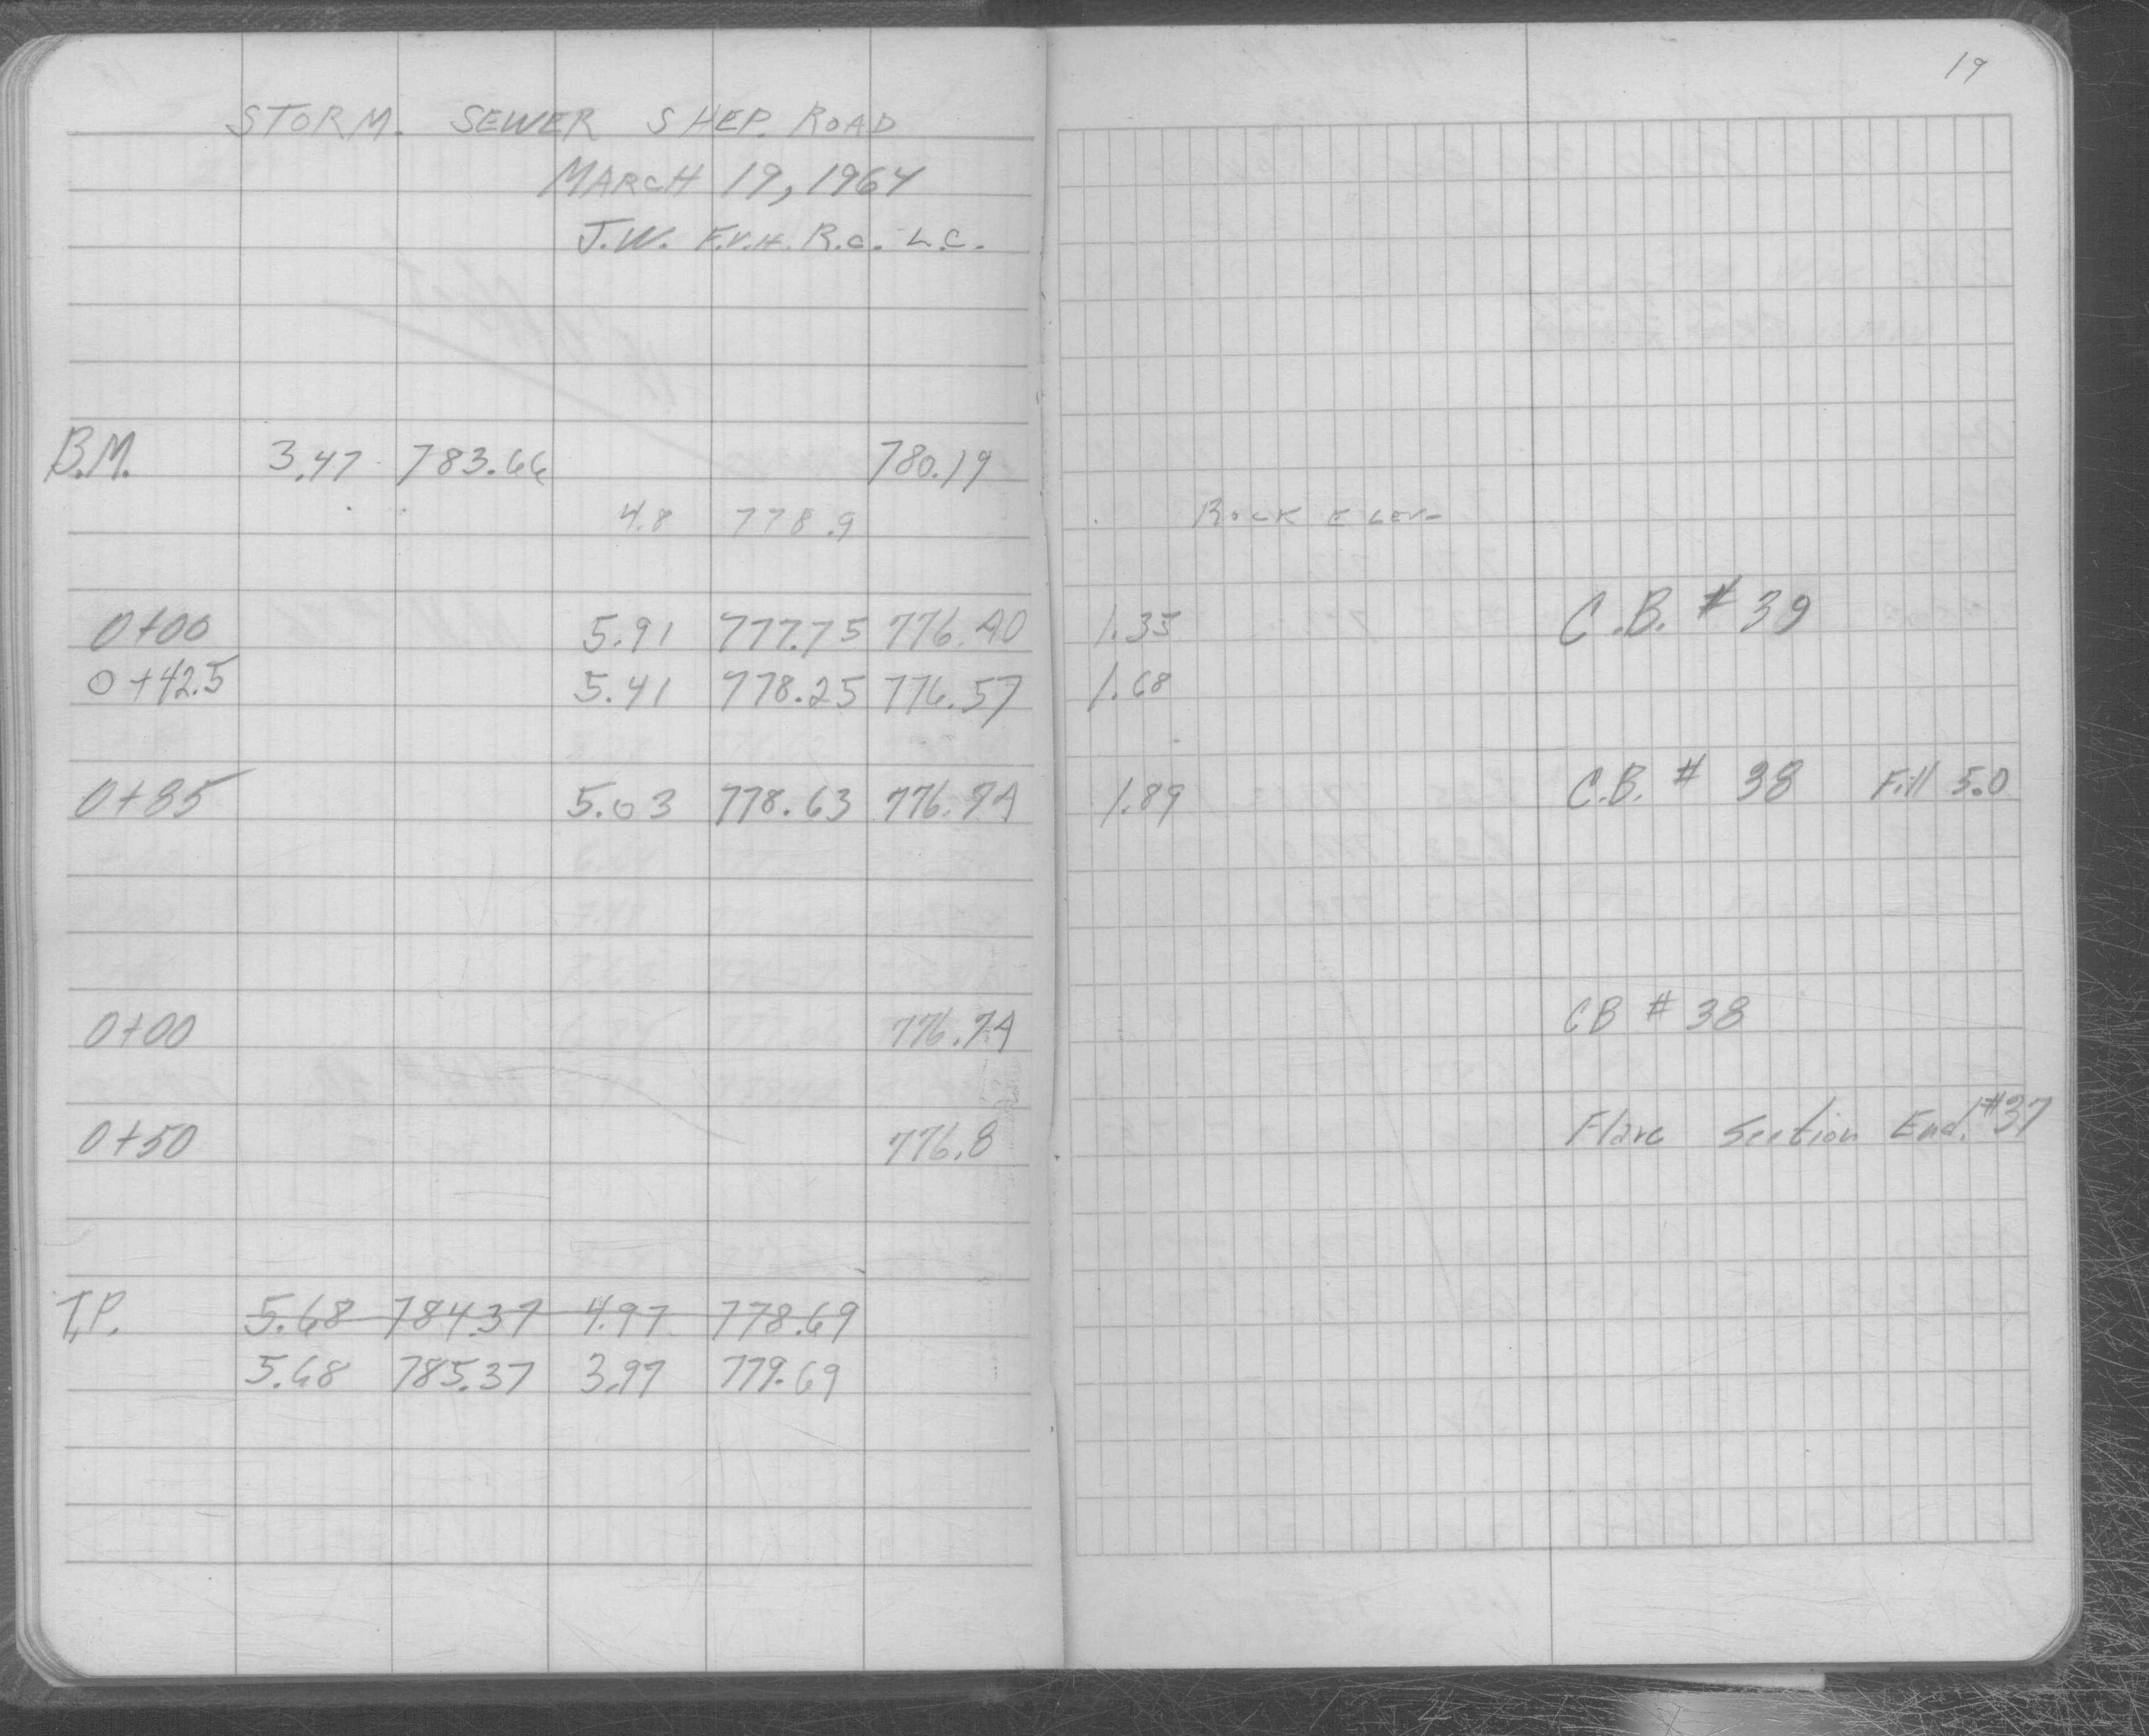 19
STORM. SEWER SHEP. ROAD
MARCH 19, 1964
J.W. F.V.H. R.C. L.C.
B.M. 3.47 783.66 780.19
4.8 778.9 ROCK ELEV-
0+00 5.91 777.75 776.40 1.35 C.B. # 39
0+42.5 5.41 778.25 776.57 1.68
0+85 5.03 778.63 776.74 1.89 C.B. # 38 Fill 5.0
0+00 776.74 CB # 38
0+50 776.8 Flare Section End. #37
T.P. 5.68 784.37 4.97 778.69
5.68 785.37 3.97 779.69